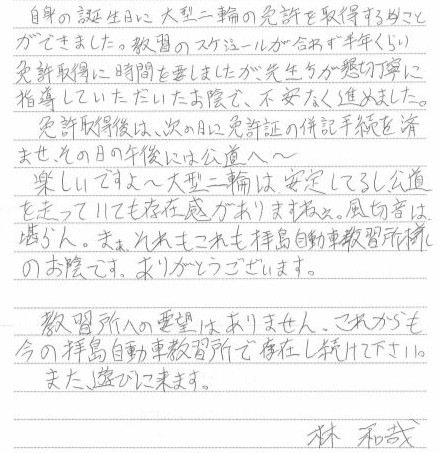 自身の誕生日に大型二輪の免許を取得すること
ができました。教習のスケジュールが合わず半年くらい
免許取得に時間を要しましたが、先生方が懇切丁寧に
指導していただいたお陰で、不安なく進めました。
免許取得後は、次の日に免許証の併記手続を済
ませ、その日の午後には公道へ〜
楽しいですよ〜大型二輪は、安定してるし公道
を走っていても存在感がありますねぇ。風切音は
堪らん。まぁ、それもこれも拝島自動車教習所様
のお陰です。ありがとうございます。
教習所への要望はありません。これからも
今の拝島自動車教習所で存在し続けて下さい。
また、遊びに来ます。
林 和哉